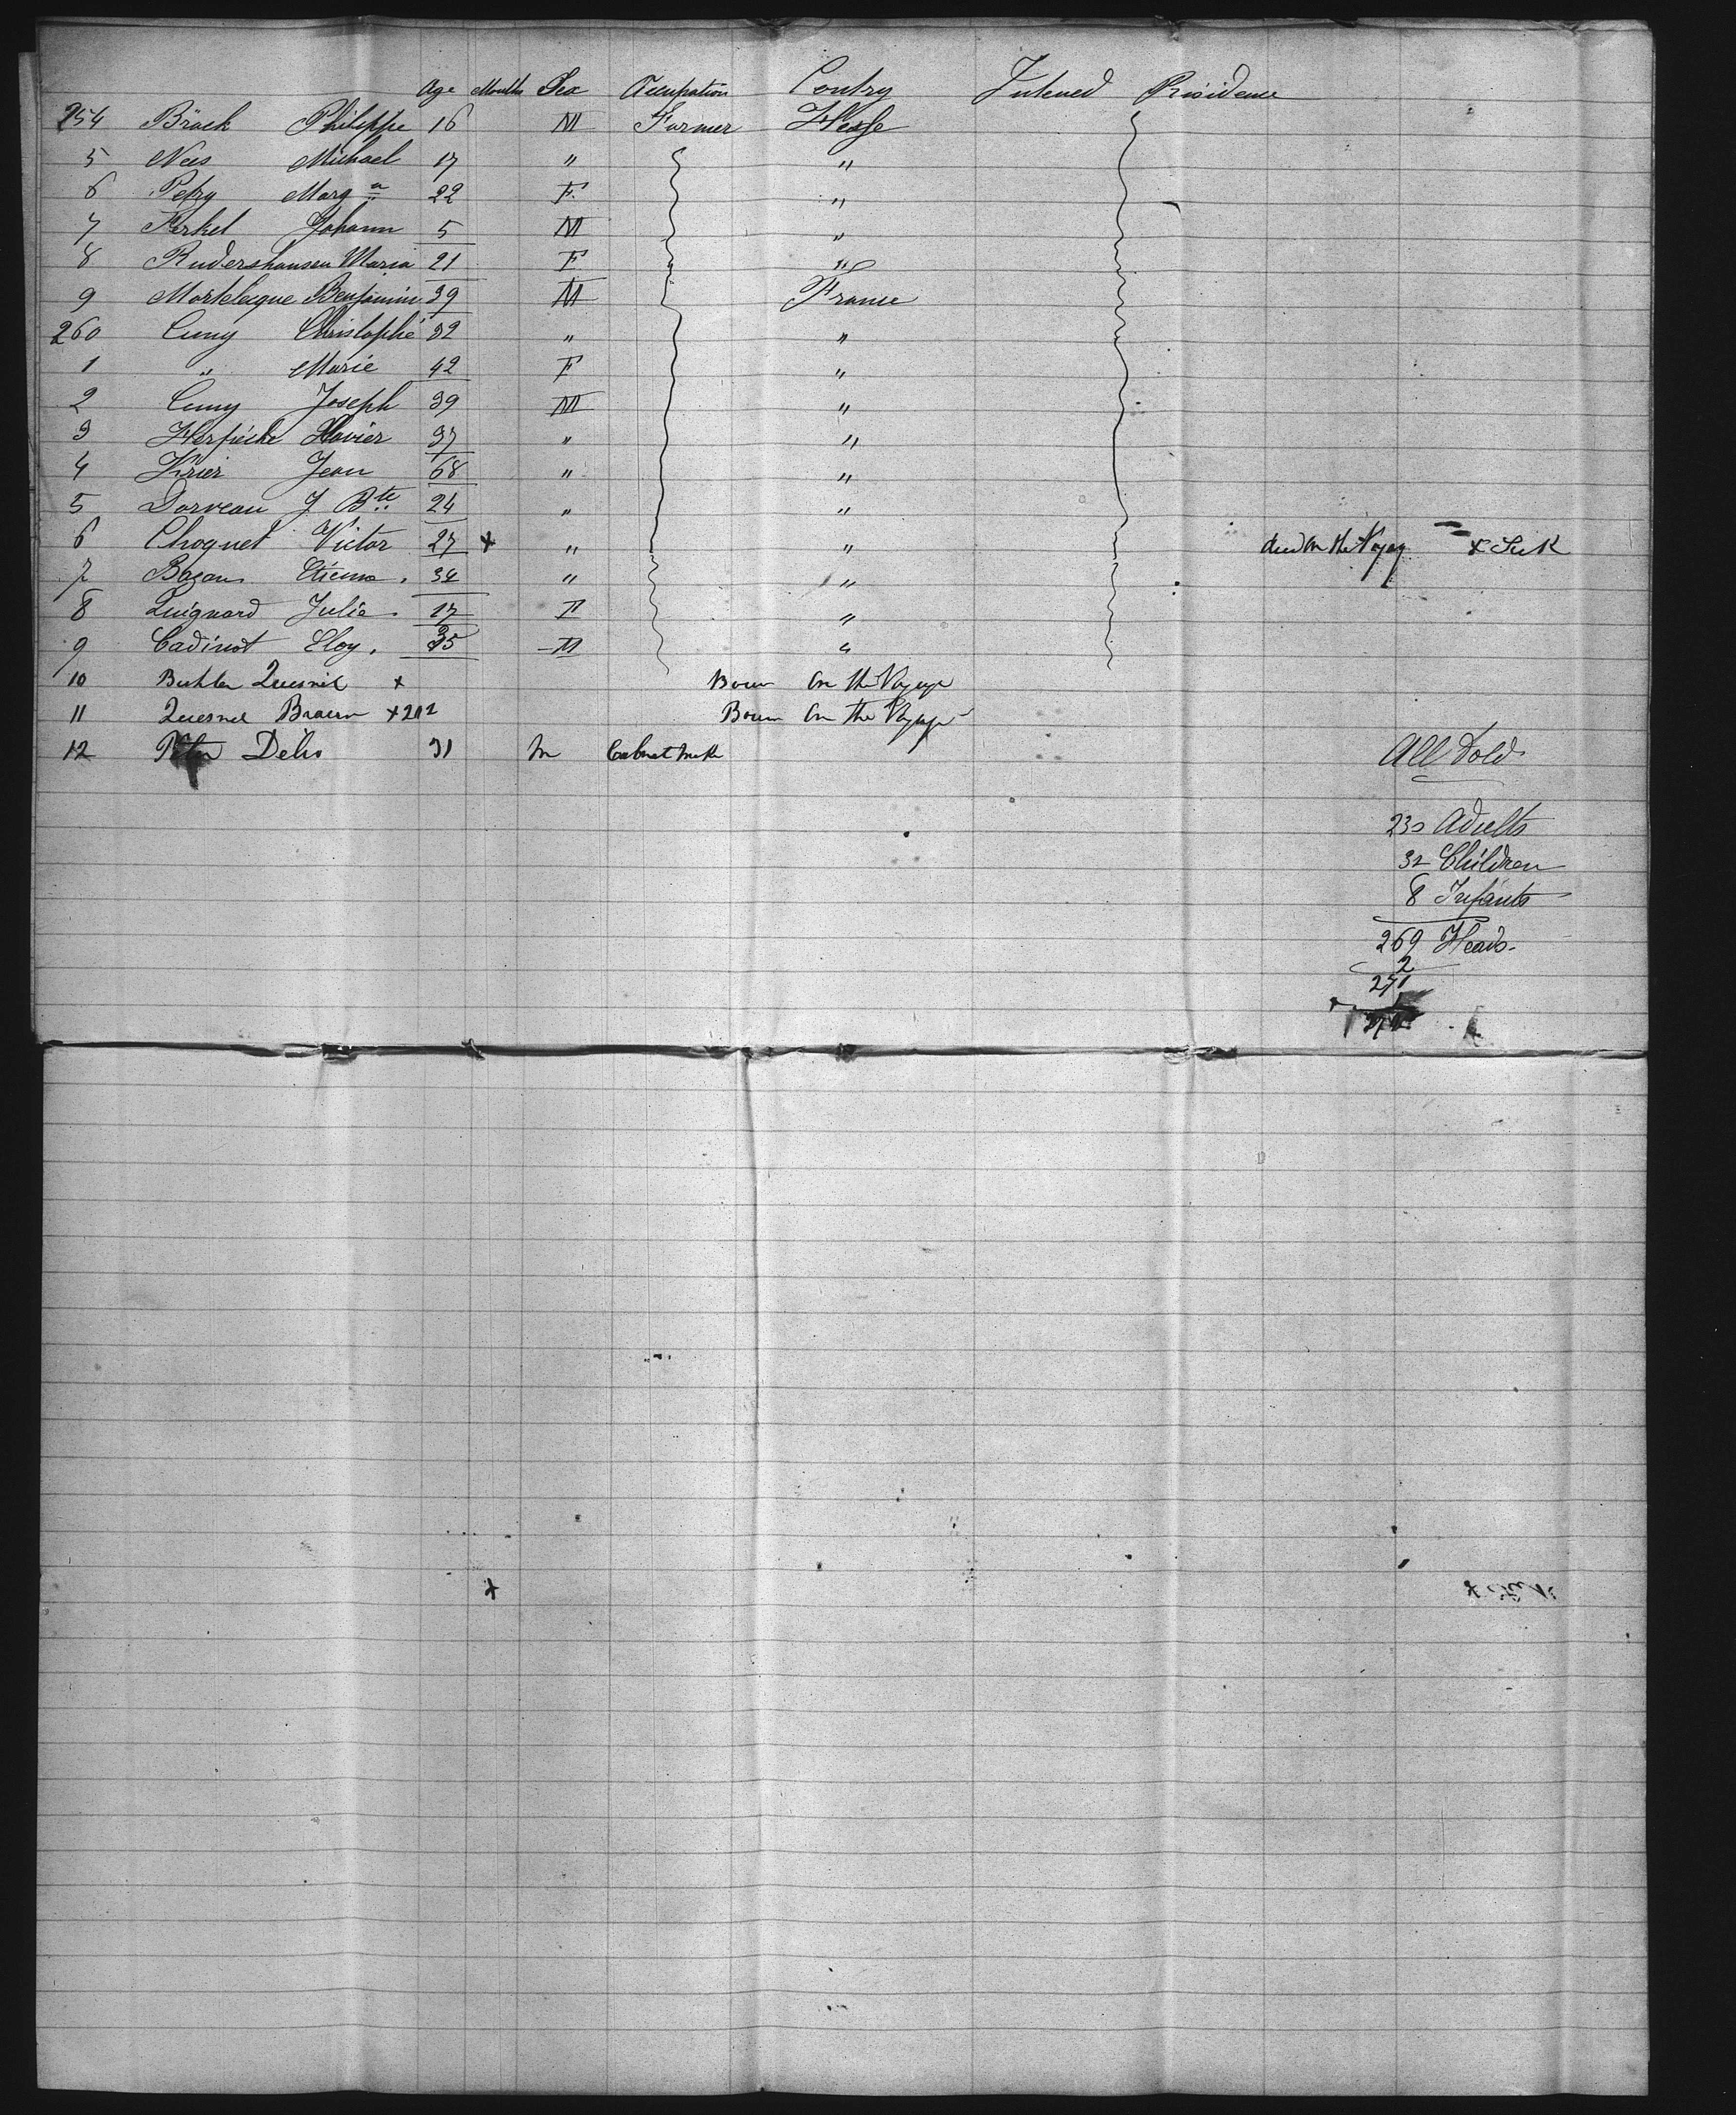 Age Months Sex Occupation Contry Intened Residence
254 Bröck Philippe 16 M Farmer Hesse
5 Nees Michael 17 " "
6 Petry Marg a 22 F "
7 Ferkel Johann 5 M "
8 Rudershausen Maria 21 F "
9 Mortelecque Benjamin 39 M France
260 Cuny Christophe 32 " "
1 " Marie 42 F "
2 Cuny Joseph 39 M "
3 Xavier 37 " "
4 Krier Jean 68 " "
5 Dorveau J Bte 24 " "
6 Choquet Victor 27 x " " died on the Voyag x Sick
7 Bazan 34 " "
8 Guignard Julie 17 F "
9 Cadinot Eloy. 35 M "
10 Buhler Quesnel x Born On the Voyage
11 Quesnel Braun x 202 Born On the Voyage
12 Delis 31 M Cabnet
All told
230 Adults
32 Children
8 Infants
269 Heads
2
271